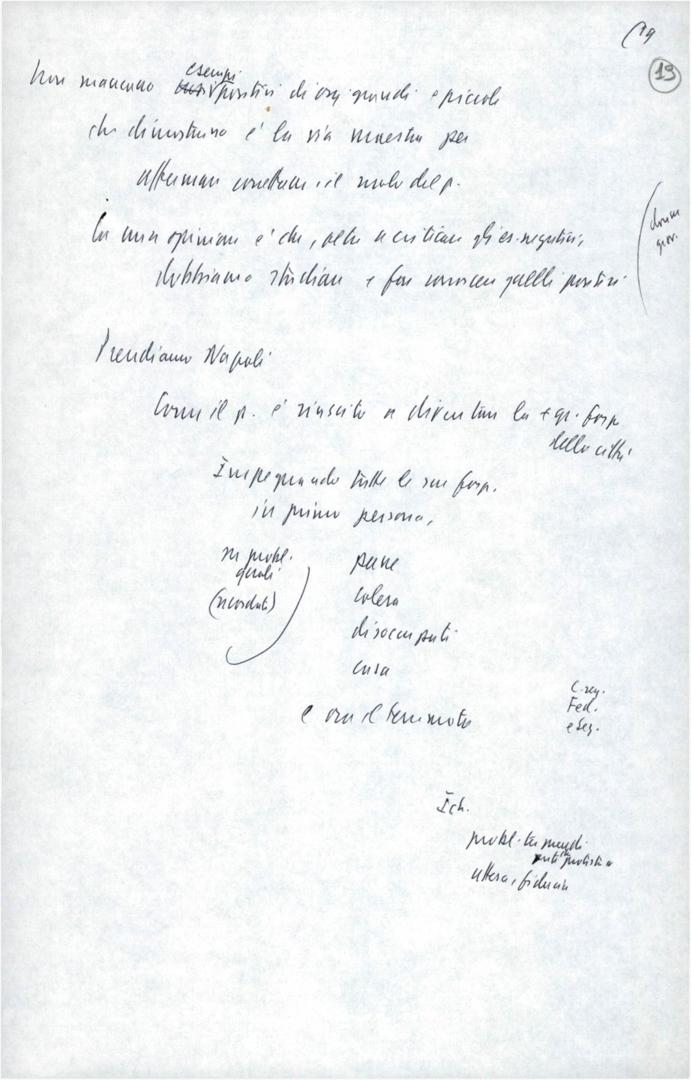 19
19
Non mancano esempi positivi di org. grandi e piccole
che dimostrano è la via maestra per
affermare concretam. il ruolo del p.
La mia opinione è che, oltre a criticare gli es. negativi,
dobbiamo studiare e far conoscere quelli positivi
Prendiamo Napoli
Come il p. è riuscito a diventare la + gr. forza
della città
Impegnando tutte le sue forze
in prima persona,
su probl.
(ricordati)
pane
colera
disoccupati
casa
e ora il terremoto
C. reg.
Fed.
e Sez.
probl.
attesa, fiducia